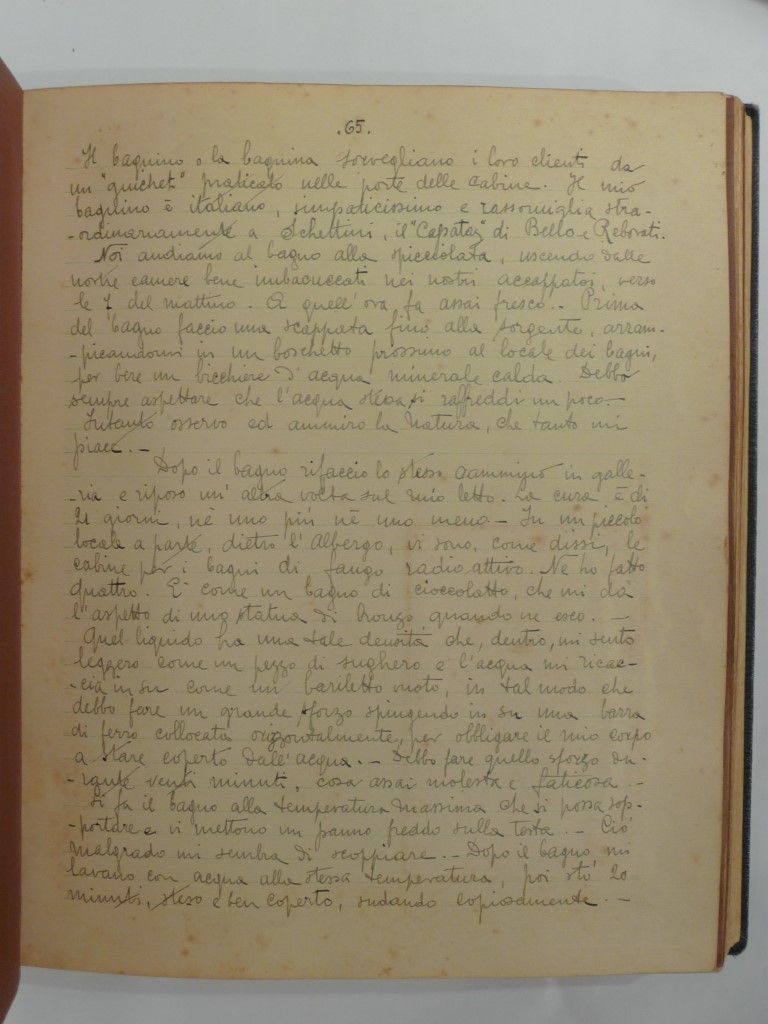 .65.
Il bagnino o la bagnina sorvegliano i loro clienti da
un "guichet" praticato nelle porte delle cabine. Il mio
bagnino è italiano, simpaticissimo e rassomiglia stra-
-ordinariamente a Schettini, il "Capataz" di Bello e Reborati.
Noi andiamo al bagno alla spicciolata, uscendo dalle
nostre camere bene imbacuccati nei nostri accappatoi, verso
le 7 del mattino. A quell'ora, fa assai fresco. - Prima
del bagno faccio una scappata fino alla sorgente, arram-
-picandomi in un boschetto prossimo al locale dei bagni,
per bere un bicchiere d'acqua minerale calda. Debbo
sempre aspettare che l'acqua stessa si raffreddi un poco. -
Intanto osservo ed ammiro la Natura, che tanto mi
piace. -
Dopo il bagno rifaccio lo stesso cammino in galle-
-ria e riposo un'altra volta sul mio letto. La cura è di
21 giorni, nè uno più nè uno meno - In un piccolo
locale a parte, dietro l'Albergo, vi sono, come dissi, le
cabine per i bagni di fango radioattivo. Ne ho fatto
quattro. E' come un bagno di cioccolatto, che mi dà
l'aspetto di una statua di bronzo quando ne esco. -
Quel liquido ha una tale densità che, dentro, mi sento
leggero come un pezzo di sughero e l'acqua mi ricac-
-cia in su come un bariletto vuoto, in tal modo che
debbo fare un grande sforzo spingendo in su una barra
di ferro collocata orizzontalmente, per obbligare il mio corpo
a stare coperto dall'acqua. - Debbo fare quello sforzo du-
-rante venti minuti, cosa assai molesta e faticosa. -
Si fa il bagno alla temperatura massima che si possa sop-
-portare e vi mettono un panno freddo sulla testa. - Ciò
malgrado mi sembra di scoppiare. - Dopo il bagno, mi
lavano con acqua alla stessa temperatura, poi sto 20
minuti, steso e ben coperto, sudando copiosamente. -